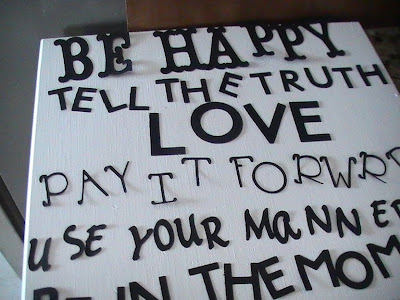 BE HAPPY
TELL THE TRUTH
LOVE
PAY IT FORWRD
USE YOUR MANNER
BE IN THE MOM